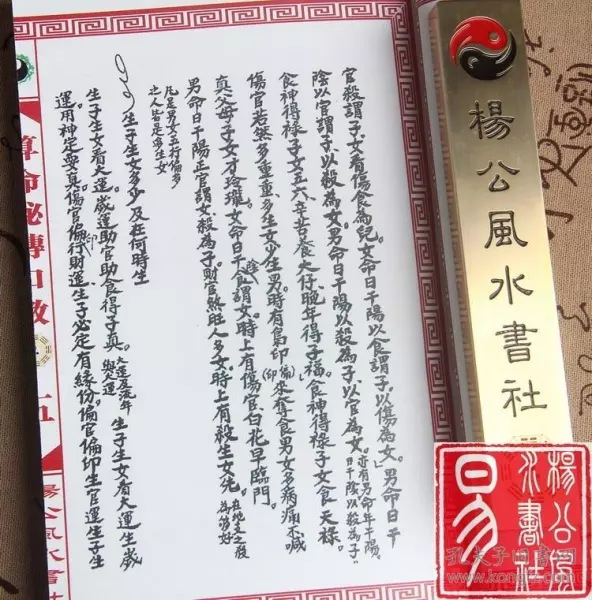 官殺謂子女看傷食為兒女命日干陽以食謂子以傷為女。男命日干
陰以官謂子以殺為女。男命日干陽以殺為子以官為女。亦有男命年干陽，日干陰以殺為子
食神得祿子女五六，辛苦養大仔晚年得子福。食神得祿子女食天祿。
傷官若然多重重，多生女少生男時有梟印(偏印)來奪食男女多病痛不喊
真父母子女才玲瓏。女命日干陰食謂女。時上有傷官，白花早臨門。
男命日干陽正官謂女。殺為子，財官煞旺人多女。時上有殺生女先。
凡是男女五行偏多
之人皆是多生女
生子生女多少及在何時生
生子生女看大運。歲運助官助食得子真。大運及流年 生子生女看大運生歲
運用神定要真。傷官偏印行財運，生子必定有緣份。偏官偏印生官運生子生
算命秘傳口敎
五
楊公風水書社
楊公風水書社
楊公風水書社
易
孔夫子旧书网
www.kongfz.com